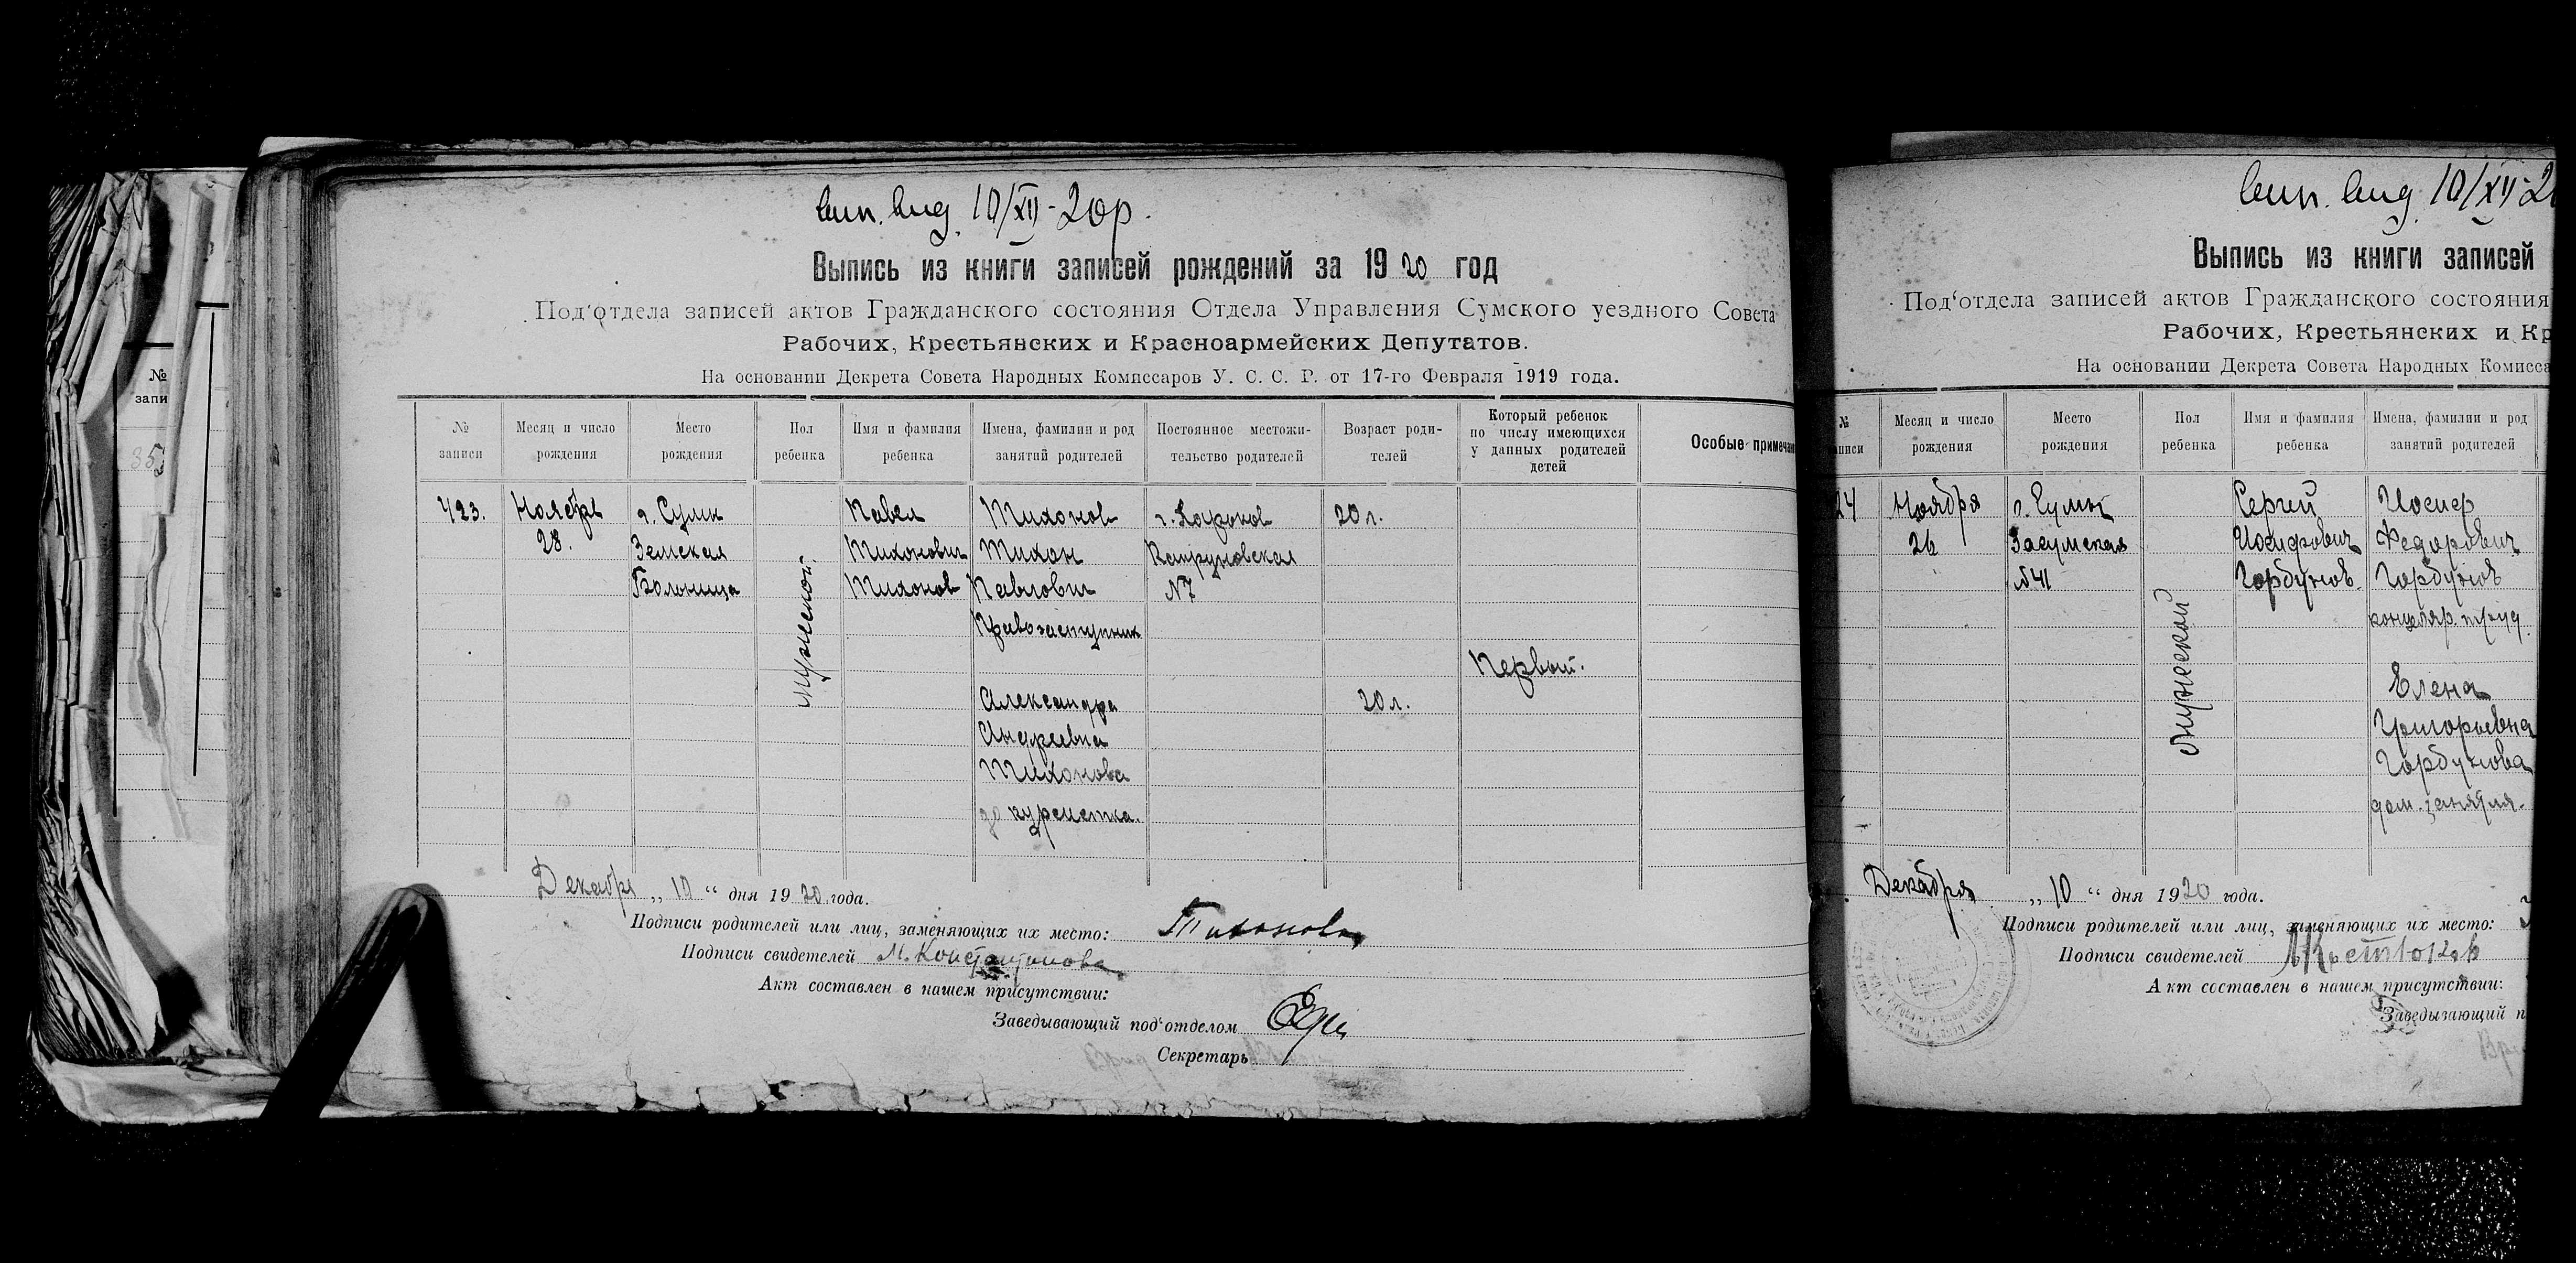 10/XII-20р.
Выпись из книги записей рождений за 1920 год
Под'отдела записей актов Гражданского состояния Отдела Управления Сумского уездного Совета
Рабочих, Крестьянских и Красноармейских Депутатов.
На основании Декрета Совета Народных Комиссаров У. С. С. Р. от 17-го Февраля 1919 года.
№ записи
Месяц и число рождения
Место рождения
Пол ребенка
Имя и фамилия ребенка
Имена, фамилии и род занятий родителей
Постоянное местожительство родителей
Возраст родителей
Который ребенок по числу имеющихся у данных родителей детей
Особые примечан
423.
Ноября
28.
г. Сумы
Земская
Больница
мужской.
Павел
Тихонович
Тихонов
Тихонов
Тихон
Павлович
Правозаступник
Александра
Андреевна
Тихонова
курсистка.
г. Харьков
№7
20 л.
20 л.
Первый.
Декабря „ 10 “ дня 1920 года.
Подписи родителей или лиц, заменяющих их место: Тихонова
Подписи свидетелей М. Константинова
Акт составлен в нашем присутствии:
Заведывающий под'отделом
Секретарь
№
запи
35
10/XII-2
Выпись из книги записей
Под'отдела записей актов Гражданского состояния
Рабочих, Крестьянских и Кр
На основании Декрета Совета Народных Комисса
№ аписи
Месяц и число рождения
Место рождения
Пол ребенка
Имя и фамилия ребенка
Имена, фамилии и род занятий родителей
24
Ноября
26
г. Сумы
Засумская
№41
Мужской
Сергей
Иосифович
Горбунов.
Иосиф
Федорович
Горбунов
канцеляр. труд.
Елена
Григорьевна
Горбунова
дом. занятия.
Декабря „ 10 “ дня 1920 года.
Подписи родителей или лиц, заменяющих их место:
Подписи свидетелей
Акт составлен в нашем присутствии:
Заведывающий п